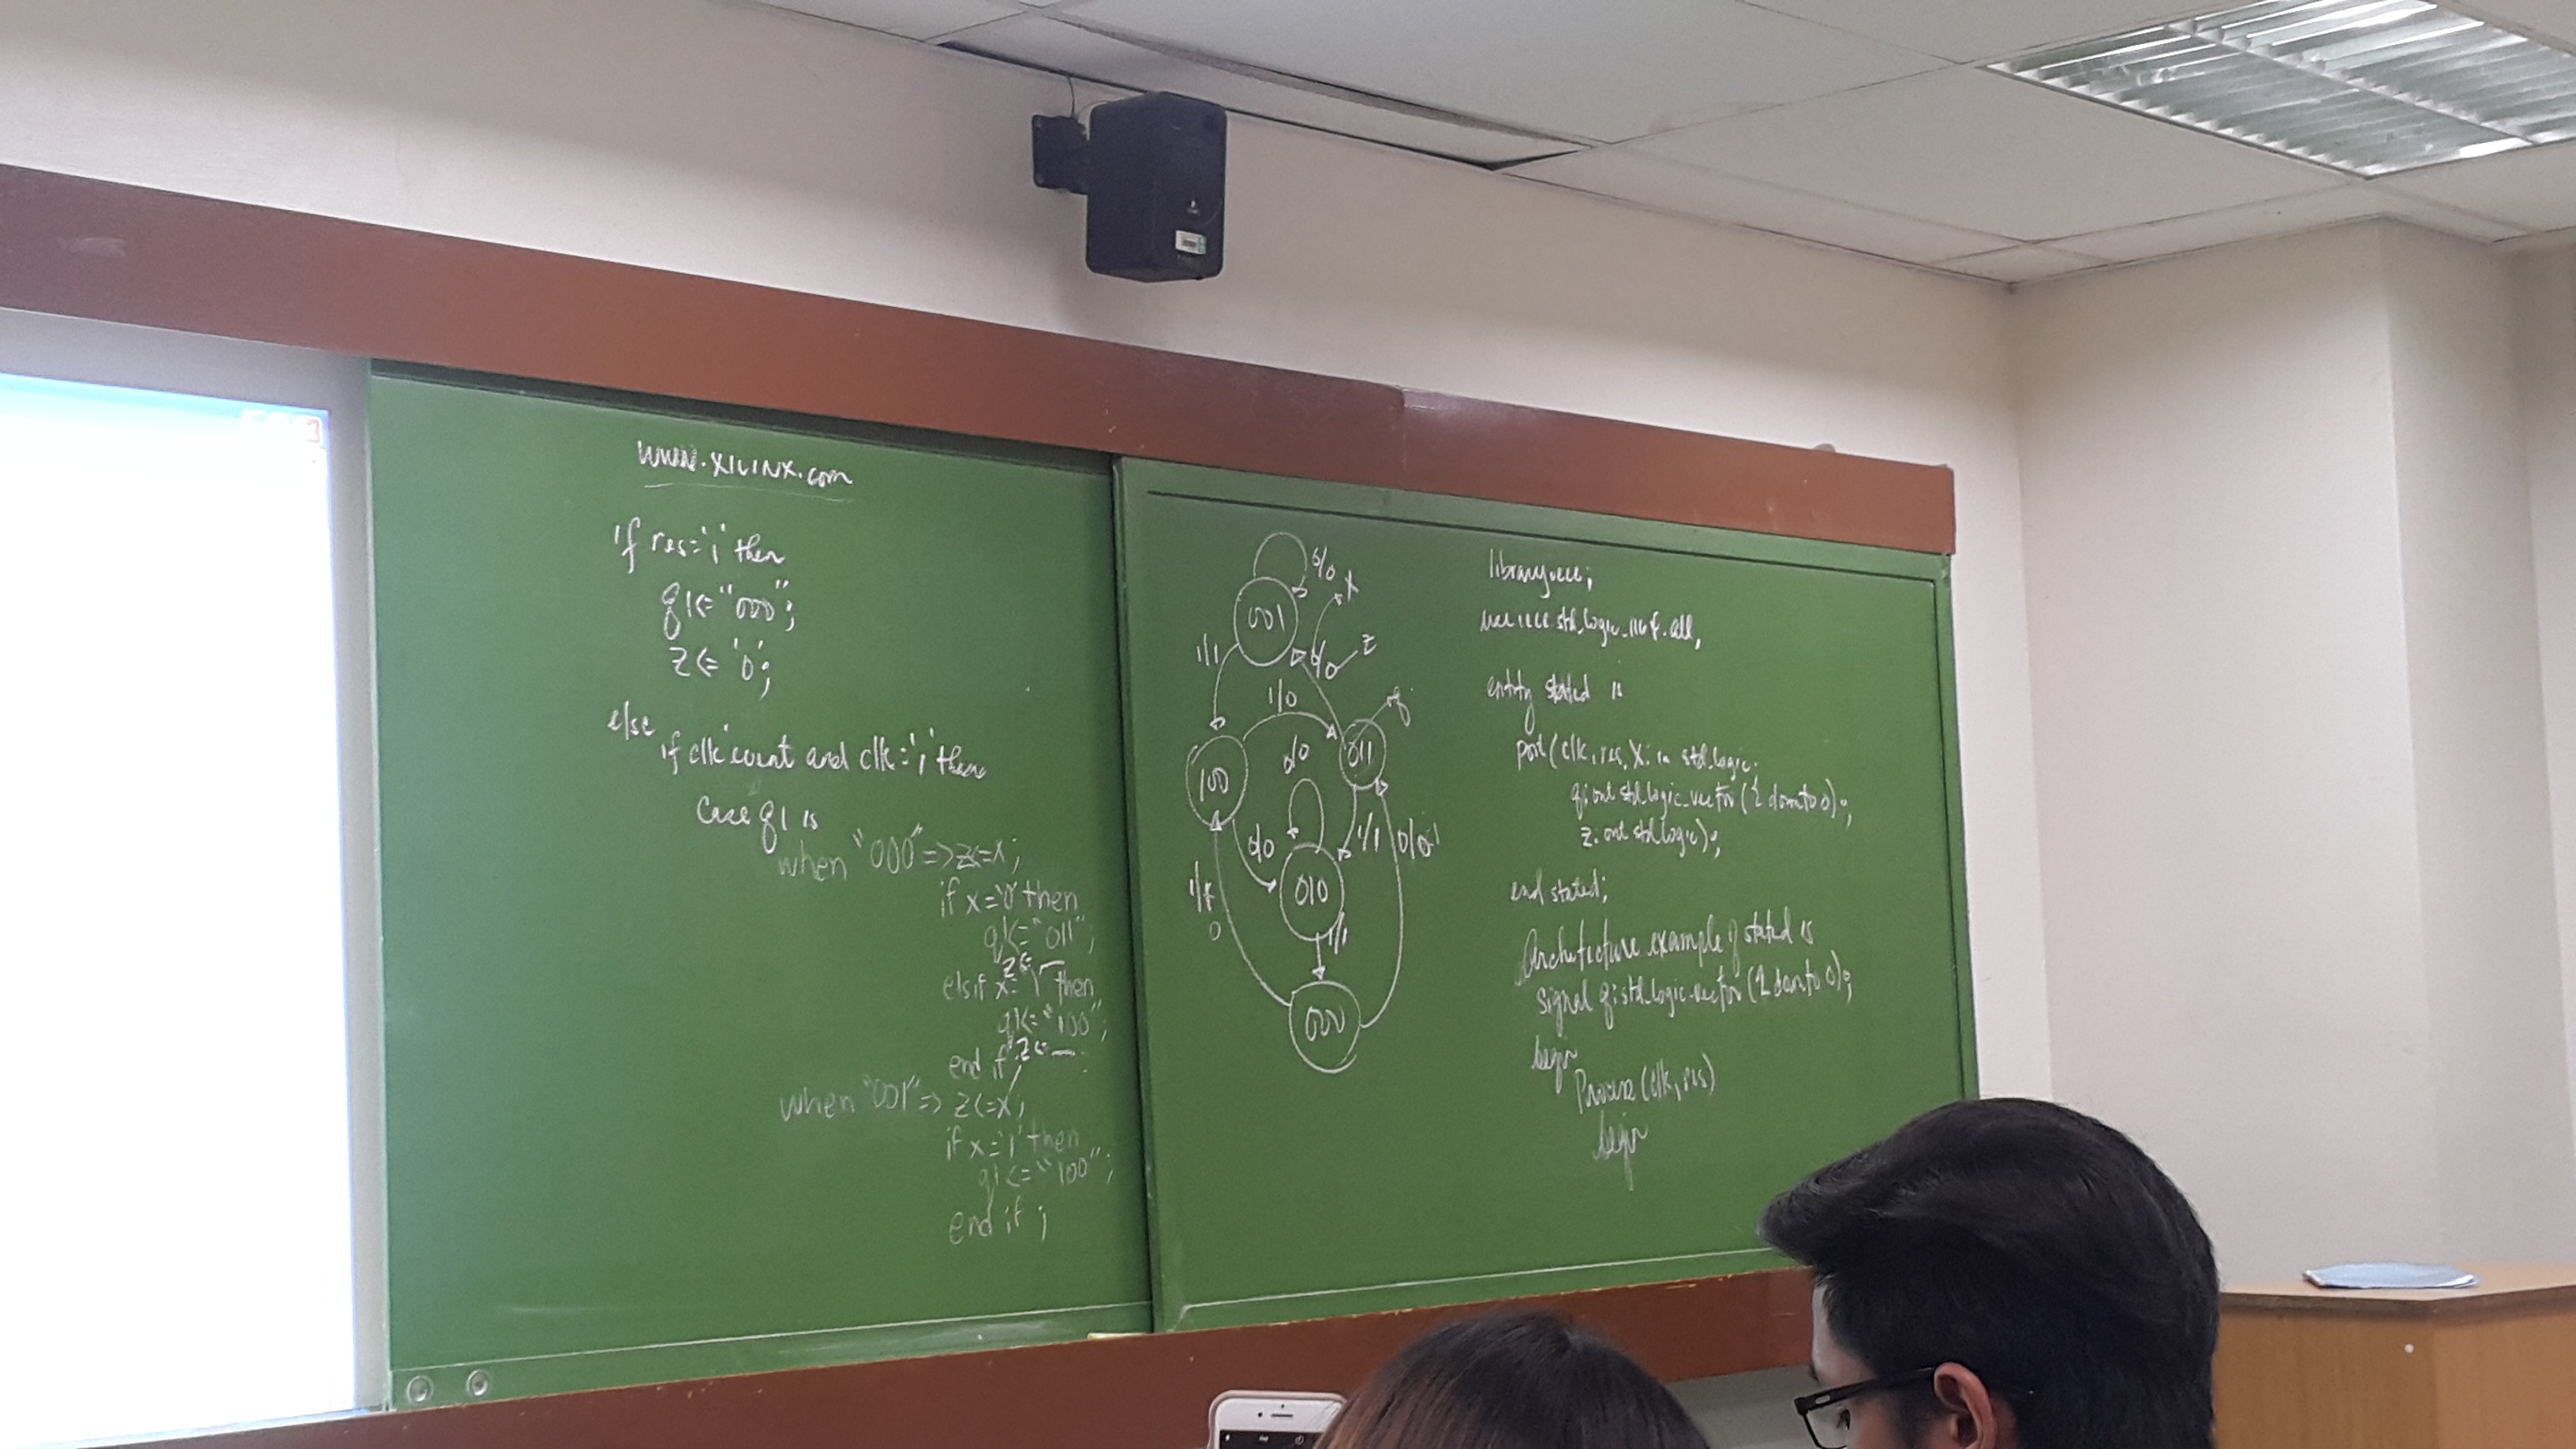 www.XILINX.com
if res='1' then
q1<="000";
z<='0';
else
if clk'event and clk='1' then
Case q1 is
when "000"=>z<=x;
if x='0' then
q1<="011";
z<=
elsif x='1' then
q1<="100";
z<=
end if;
when "001"=> z<=x;
if x='1' then
q1<="100";
end if;
0/0
x
001
1/1
0/0
z
1/0
q
100
0/0
011
0/0
1/1
010
1/1
1/
0
000
library ieee;
use ieee std_logic_1164.all,
entity stated is
port(clk,res,x: in std_logic;
q:out std_logic_vector(2 downto 0);
z:out std_logic);
end stated;
Architecture example of stated is
signal q:std_logic_vector(2 downto 0);
begin
Process(clk,res)
begin